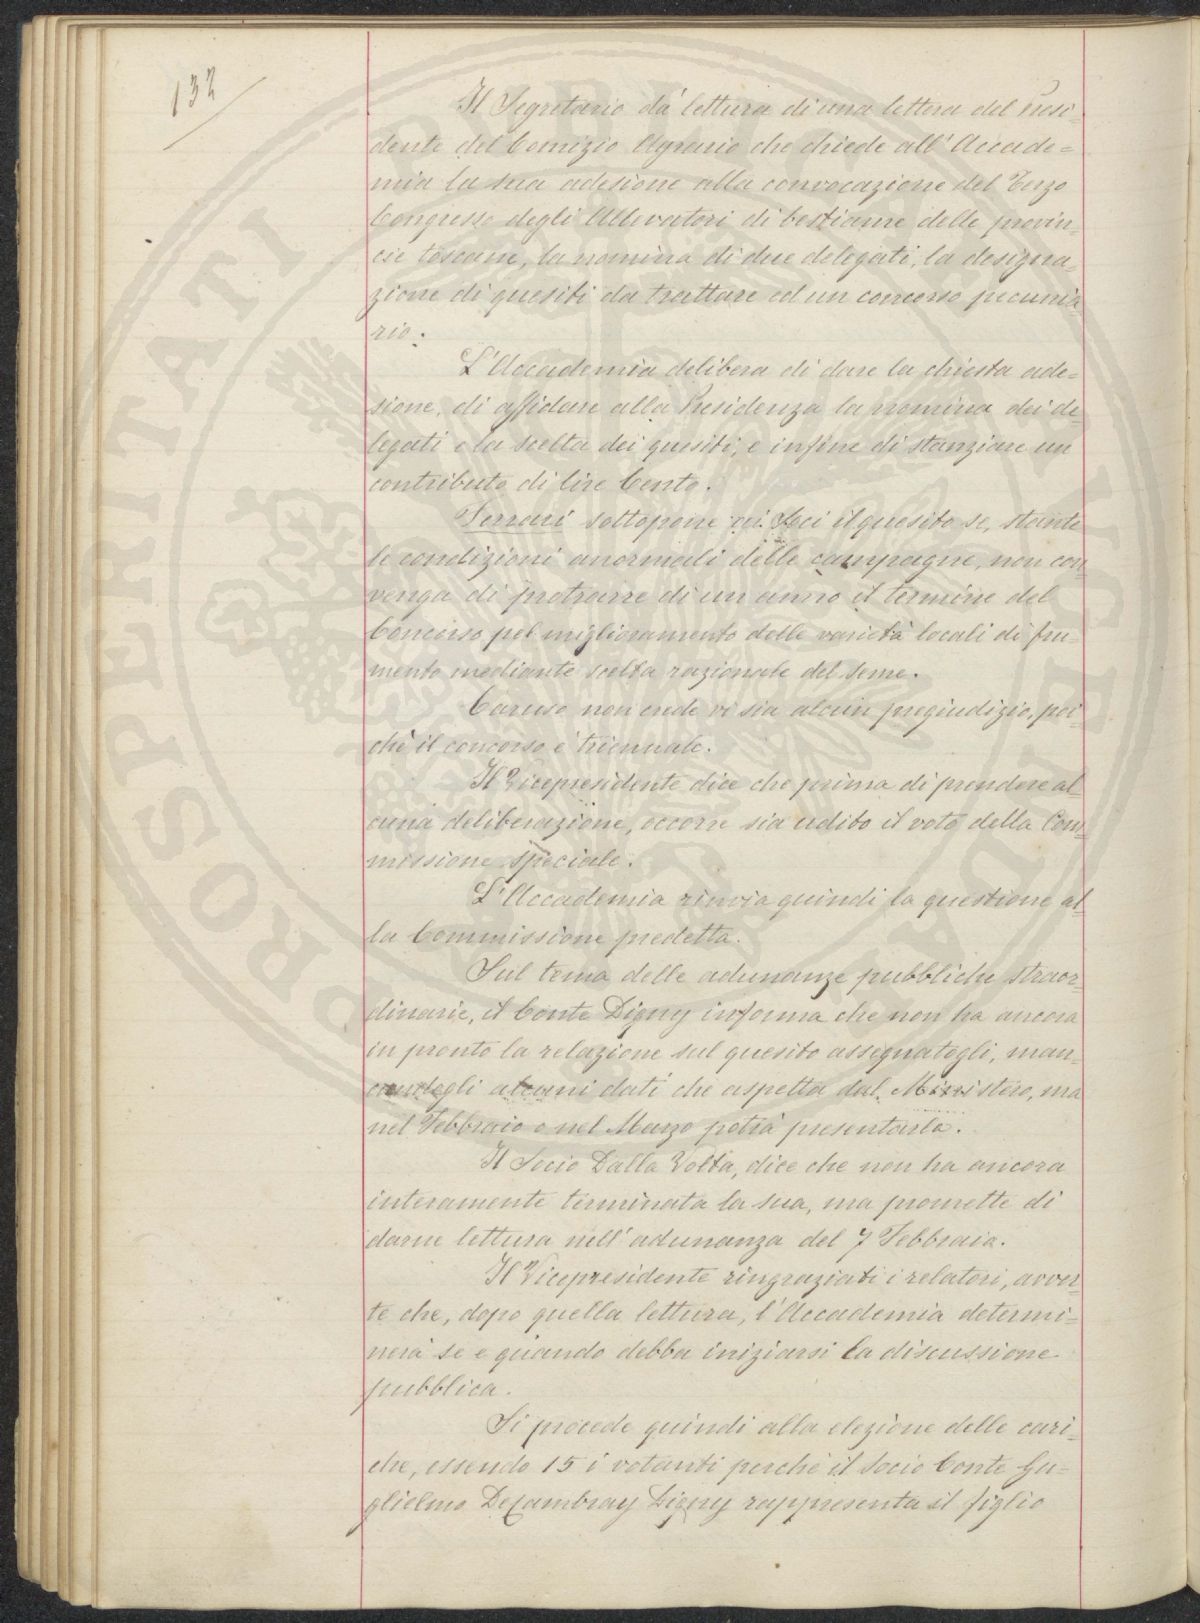 132
Il Segretario dà lettura di una lettera del Presi-
dente del Comizio Agrario che chiede all'Accade=
mia la sua adesione alla convocazione del Terzo
Congresso degli Allevatori di bestiame delle provin-
cie toscane, la nomina di due delegati, la designa-
zione di quesiti da trattare ed un concorso pecunia
rio.
L'Accademia delibera di dare la chiesta ade=
sione, di affidare alla Presidenza la nomina dei de
legati e la scelta dei quesiti, e infine di stanziare un
contributo di lire Cento.
Ferrari sottopone ai Soci il quesito se, stante
le condizioni anormali delle campagne, non con-
venga di protrarre di un anno il termine del
Concorso pel miglioramento delle varietà locali di fru-
mento mediante scelta razionale del seme.
Caruso non crede vi sia alcun pregiudizio, poi-
chè il concorso è triennale.
Il Vicepresidente dice che prima di prendere al-
cuna deliberazione, occorre sia udito il voto della Com-
missione speciale.
L'Accademia rinvia quindi la questione al-
la Commissione predetta.
Sul tema delle adunanze pubbliche straor-
dinarie, il Conte Digny informa che non ha ancora
in pronto la relazione sul quesito assegnatogli, man-
candogli alcuni dati che aspetta dal Ministero, ma
nel Febbraio o nel Marzo potrà presentarla.
Il Socio Dalla Volta, dice che non ha ancora
interamente terminata la sua, ma promette di
darne lettura nell'adunanza del 7 Febbraio.
Il Vicepresidente ringraziati i relatori, avver-
te che, dopo quella lettura, l'Accademia determi=
nerà se e quando debba iniziarsi la discussione
pubblica.
Si procede quindi alla elezione delle cari-
che, essendo 15 i votanti perchè il Socio Conte Gu=
glielmo De Cambray Digny rappresenta il figlio
PROSPERITATI PUBLICAE AUGENDAE